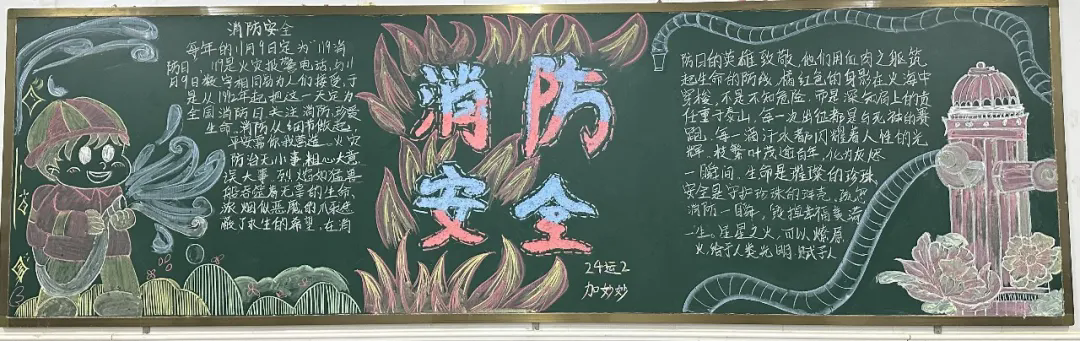 消防安全
每年的11月9日定为"119消
防日"，119是火灾报警电话，与11
月9日数字相同易为人们接受，于
是从1992年起把这一天定为
全国消防日，关注消防，珍爱
生命，消防从细节做起，
平安帮你我营造，火灾
防治无小事粗心大意
误大事，烈焰如猛兽
般吞噬着无辜的生命，
浓烟似恶魔的爪牙遮
蔽了求生的希望，在消
消防
安全
24运2
加妙妙
防日的英雄致敬，他们用血肉之躯筑
起生命的防线，橘红色的身影在火海中
穿梭，不是不知危险，而是深知肩上的责
任重于泰山，每一次出征都是与死神的赛
跑，每一滴汗水都闪耀着人性的光
辉，枝繁叶茂逾百年，化为灰烬
一瞬间，生命是璀璨的珍珠，
安全是守护珍珠的珠壳，疏忽
消防一时，毁掉幸福
一生，星星之火，可以燎原
火给予人类光明，赋予人